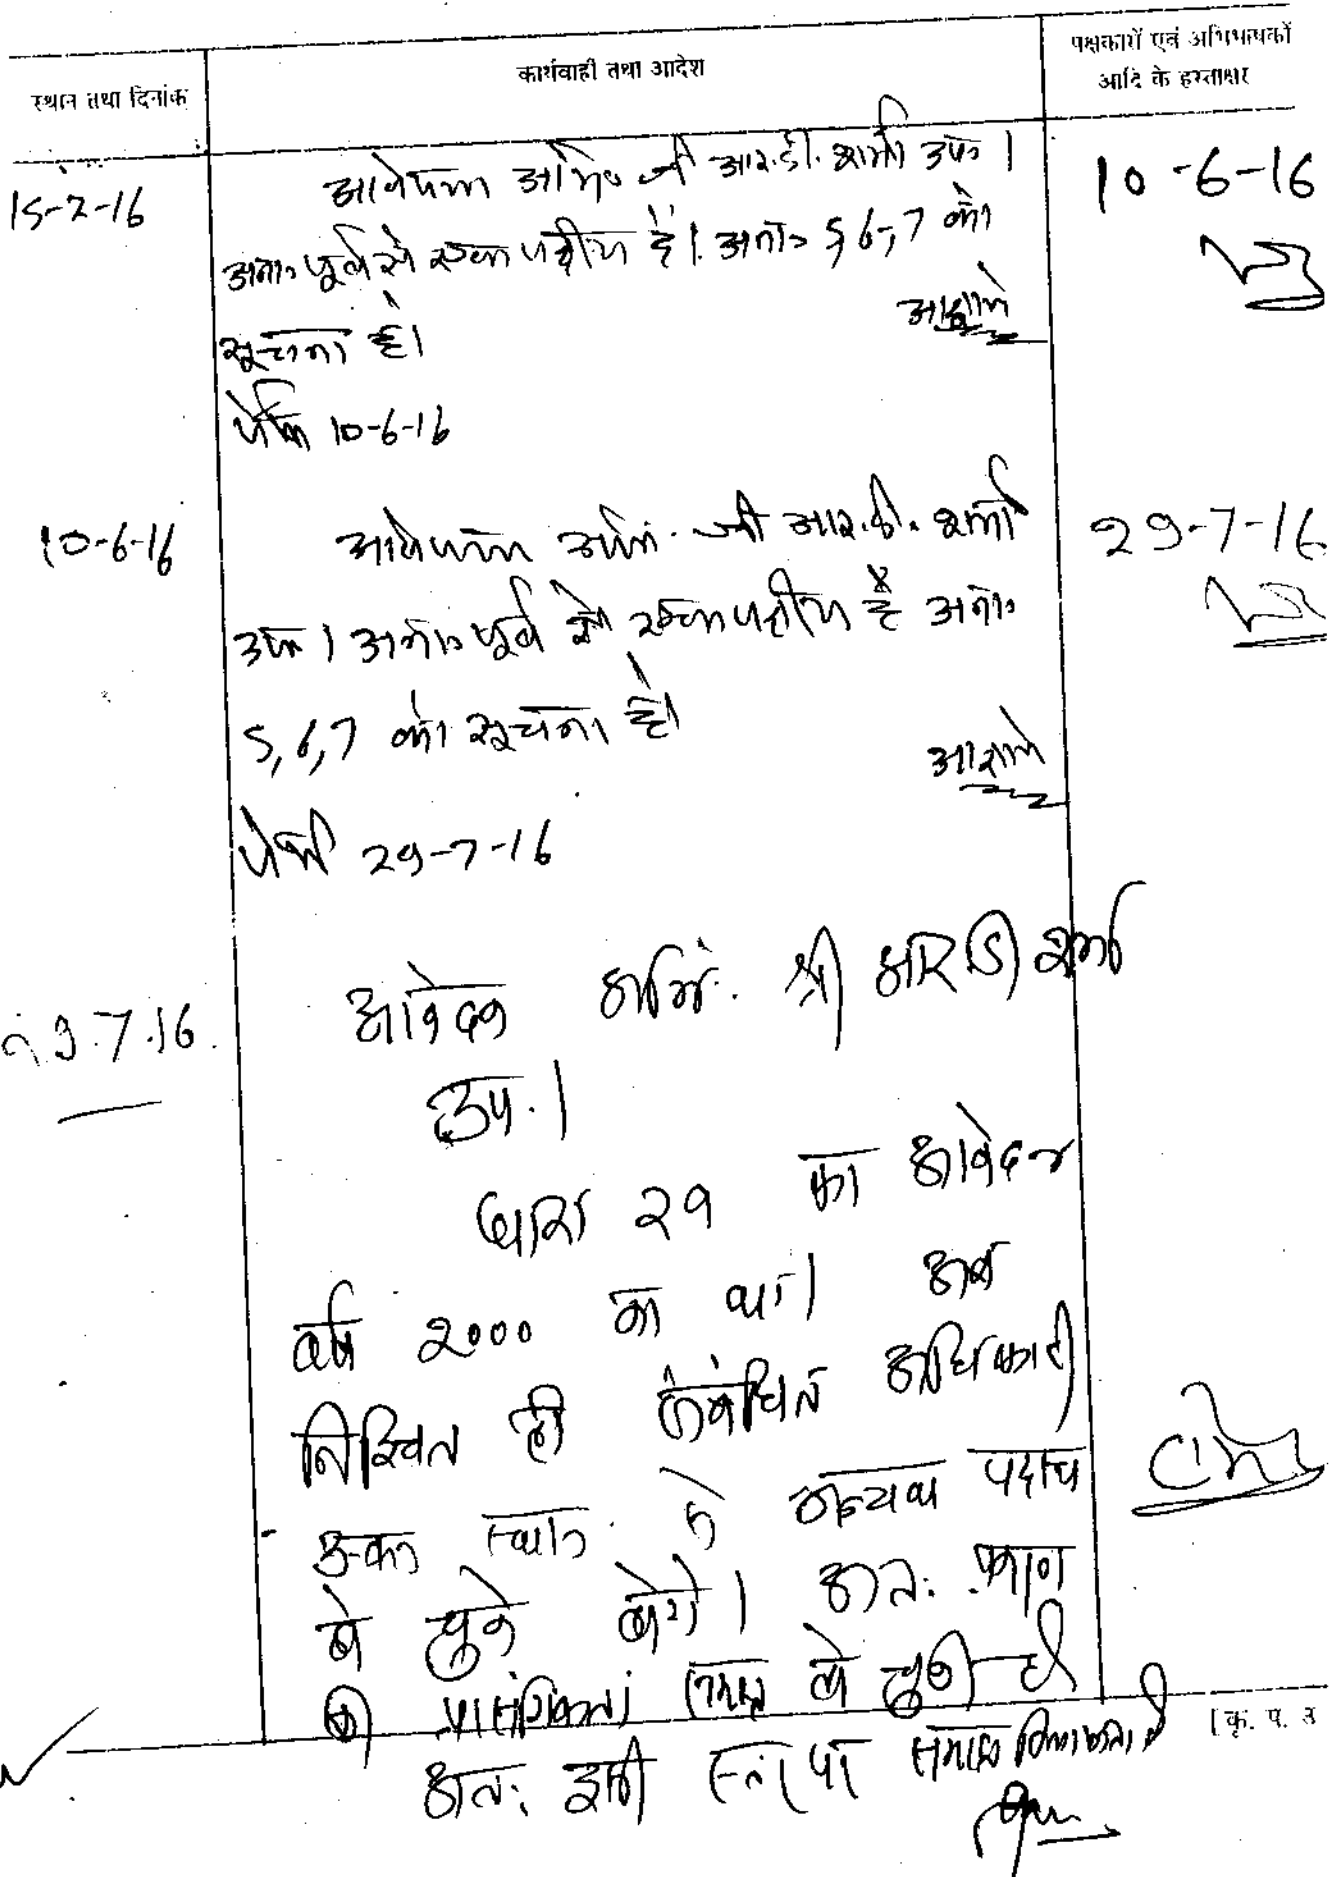 स्थान तथा दिनांक
कार्यवाही तथा आदेश
पक्षकारों एवं अभिभाषकों
आदि के हस्ताक्षर
15-2-16
आवेदक अभि० श्री आर.डी. शर्मा उप०।
अना० पूर्व से एक पक्षीय है। अना० 5,6,7 को
सूचना है।
पेशी 10-6-16
10-6-16
10-6-16
आवेदक अभि. श्री आर.डी. शर्मा
उप०। अना० पूर्व से एक पक्षीय है अना०
5,6,7 को सूचना है।
पेशी 29-7-16
29-7-16
29.7.16
आवेदक अभि. श्री आर डी शर्मा
उप.।
धारा २९ का आवेदन
वर्ष २००० का था। अब
निश्चित ही संबंधित अधिकारी
उक्त स्थान से अन्यत्र पदस्थ
हो चुके होंगे। अतः प्रकरण
की प्रासंगिकता समाप्त हो चुकी है
अतः इसी स्तर पर समाप्त किया जाता है
[कृ. प. उ